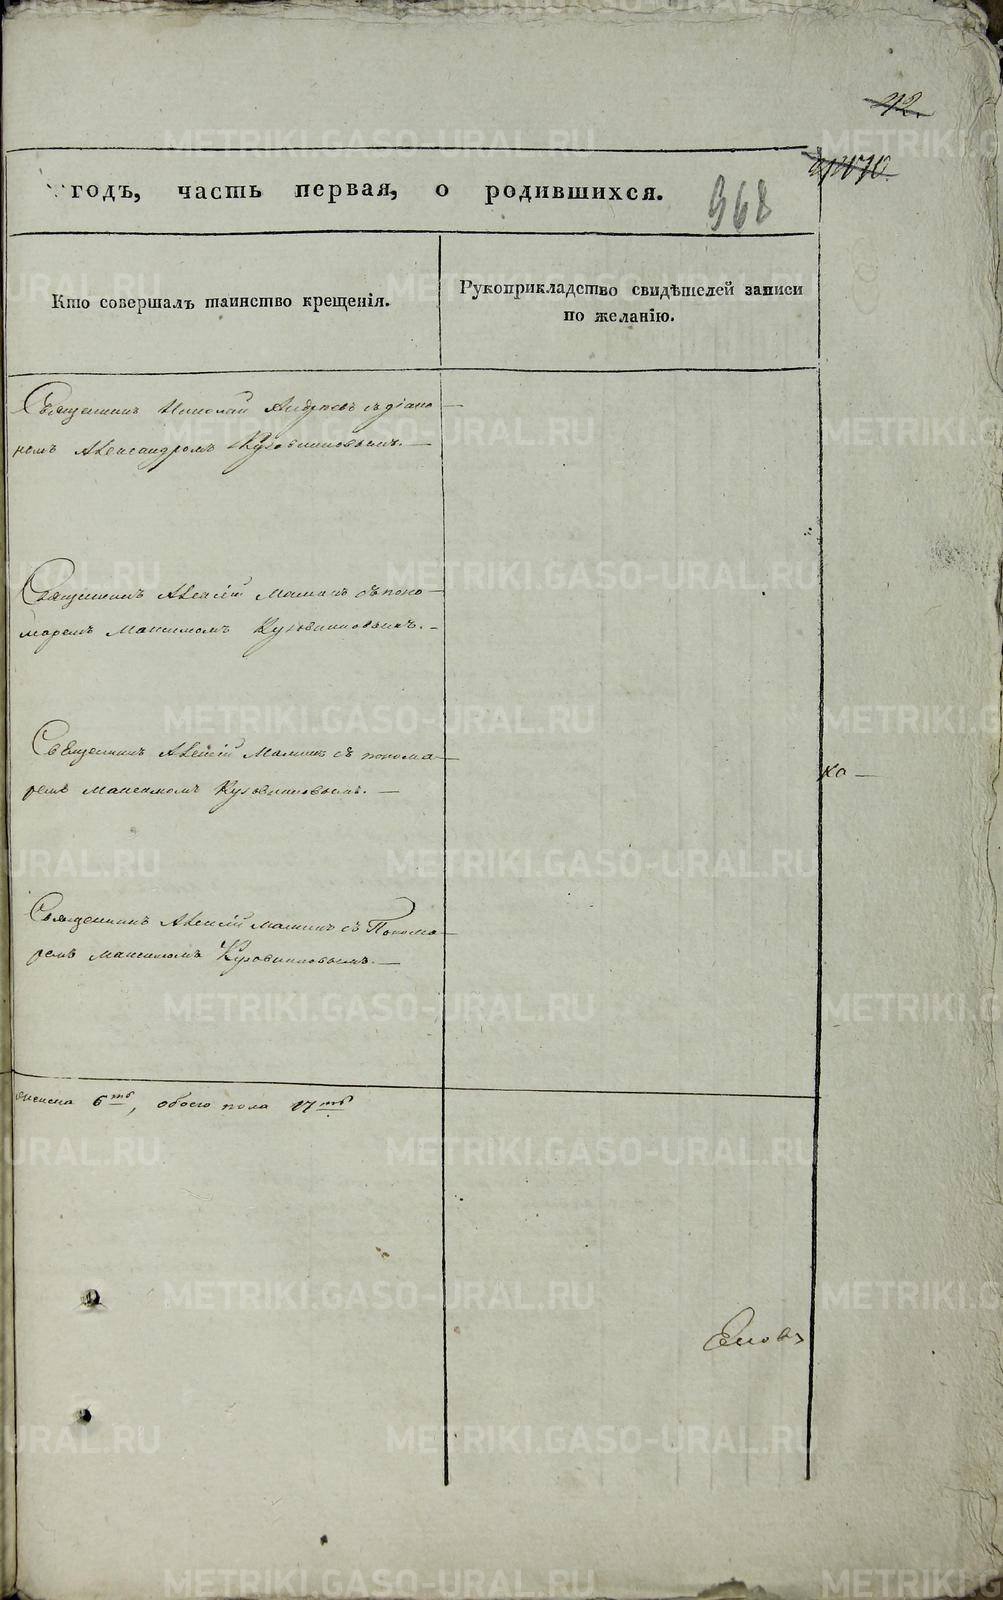 42.
968
годъ, часть первая, о родившихся.
Кто совершалъ таинство крещенія.
Рукоприкладство свидѣтелей записи
по желанію.
Священникъ Николай Андреевъ съ діако
номъ Александромъ Кузовниковымъ. —
Священникъ Алексій Малинъ съ поно-
маремъ Максимомъ Кузовниковымъ. —
Священникъ Алексій Малинъ съ понома-
ремъ Максимомъ Кузовниковымъ. —
ка —
Священникъ Алексій Малинъ съ Понома-
ремъ Максимомъ Кузовниковымъ. —
женска 6ть, обоего пола 17ть
METRIKI.GASO-URAL.RU